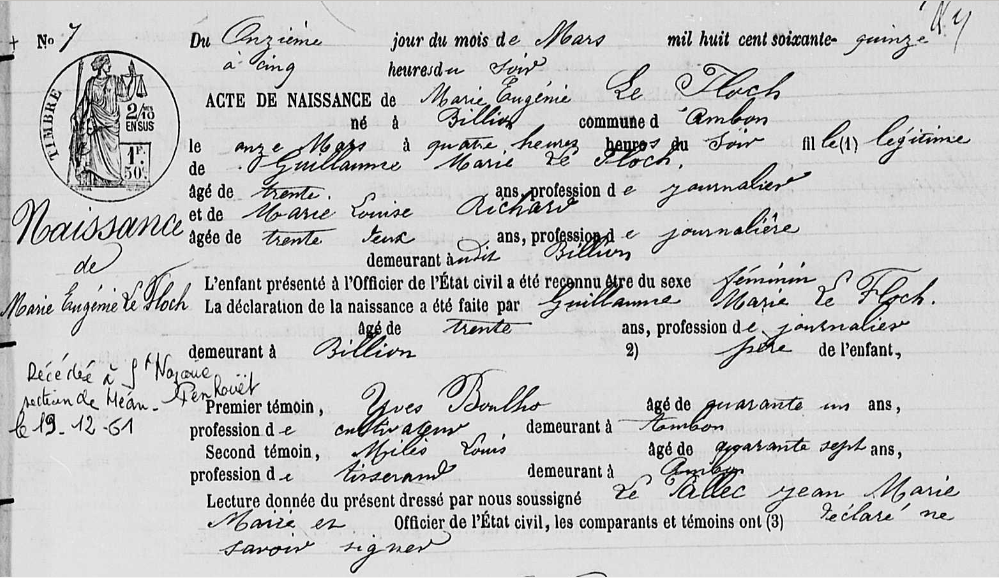 N° 7
Du Onzième jour du mois de Mars mil huit cent soixante-quinze
à Cinq heures du Soir
TIMBRE
2/10 EN SUS
1F. 50C.
ACTE DE NAISSANCE de Marie Eugénie Le Floch
né à Billion commune d'Ambon
le onze Mars à quatre heures heures du Soir fille (1) légitime
de Guillaume Marie Le Floch
âgé de trente ans, profession de journalier
et de Marie Louise Richard
âgée de trente deux ans, profession de journalière
demeurant audit Billion
Naissance
de
Marie Eugénie Le Floch
L'enfant présenté à l'Officier de l'État civil a été reconnu être du sexe féminin
La déclaration de la naissance a été faite par Guillaume Marie Le Floch.
âgé de trente ans, profession de journalier
demeurant à Billion 2) père de l'enfant,
Décédée à St Nazaire
section de Méan-Penhouët
le 19-12-61
Premier témoin, Yves Boulho âgé de quarante un ans,
profession de cultivateur demeurant à Ambon
Second témoin, Miles Louis âgé de quarante sept ans,
profession de tisserand demeurant à Ambon
Lecture donnée du présent dressé par nous soussigné Le Pallec Jean Marie
Maire et Officier de l'État civil, les comparants et témoins ont (3) déclaré ne
savoir signer